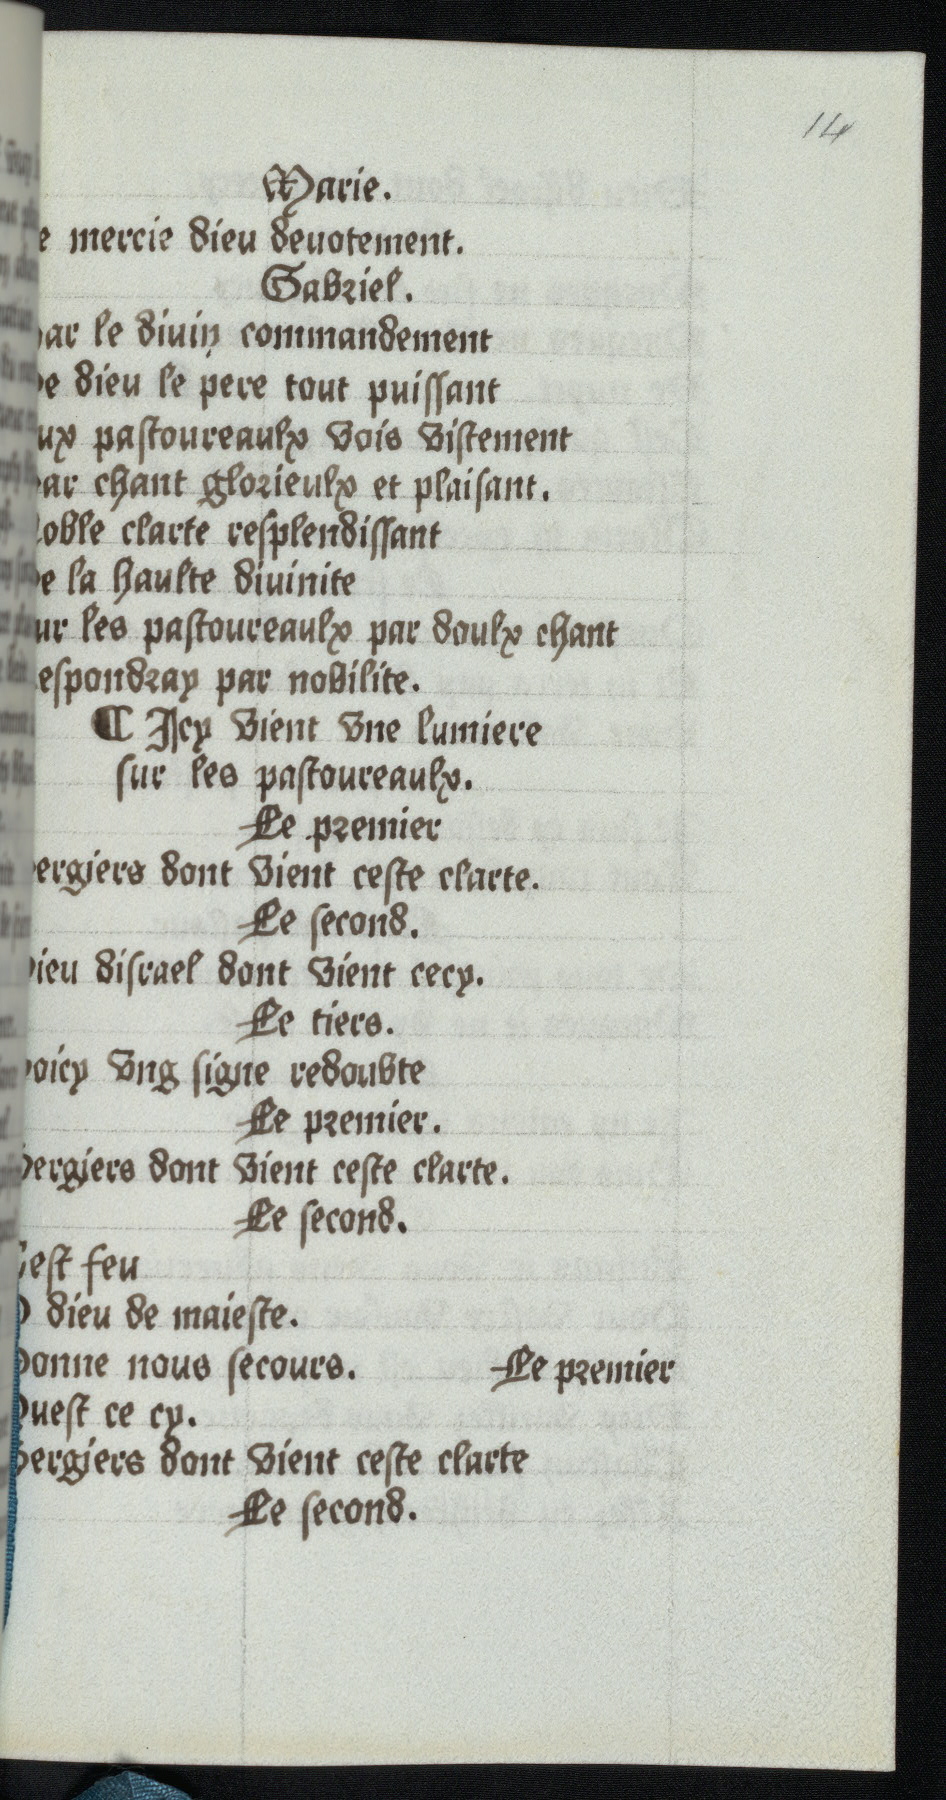 14
Marie.
e mercie dieu deuotement.
Gabriel.
par le diuin commandement
De dieu le pere tout puissant
ux pastoureaulx vois vistement
par chant glorieulx et plaisant.
oble clarte resplendissant
De la haulte diuinite
ur les pastoureaulx par doulx chant
espondray par nobilite.
¶ Icy vient vne lumiere
sur les pastoureaulx.
Le premier
bergiers dont vient ceste clarte.
Le second.
Dieu disrael dont vient cecy.
Le tiers.
voicy vng signe redoubte
Le premier.
bergiers dont vient ceste clarte.
Le second.
Cest feu
O dieu de maieste.
Donne nous secours. Le premier
Quest ce cy.
bergiers dont vient ceste clarte
Le second.